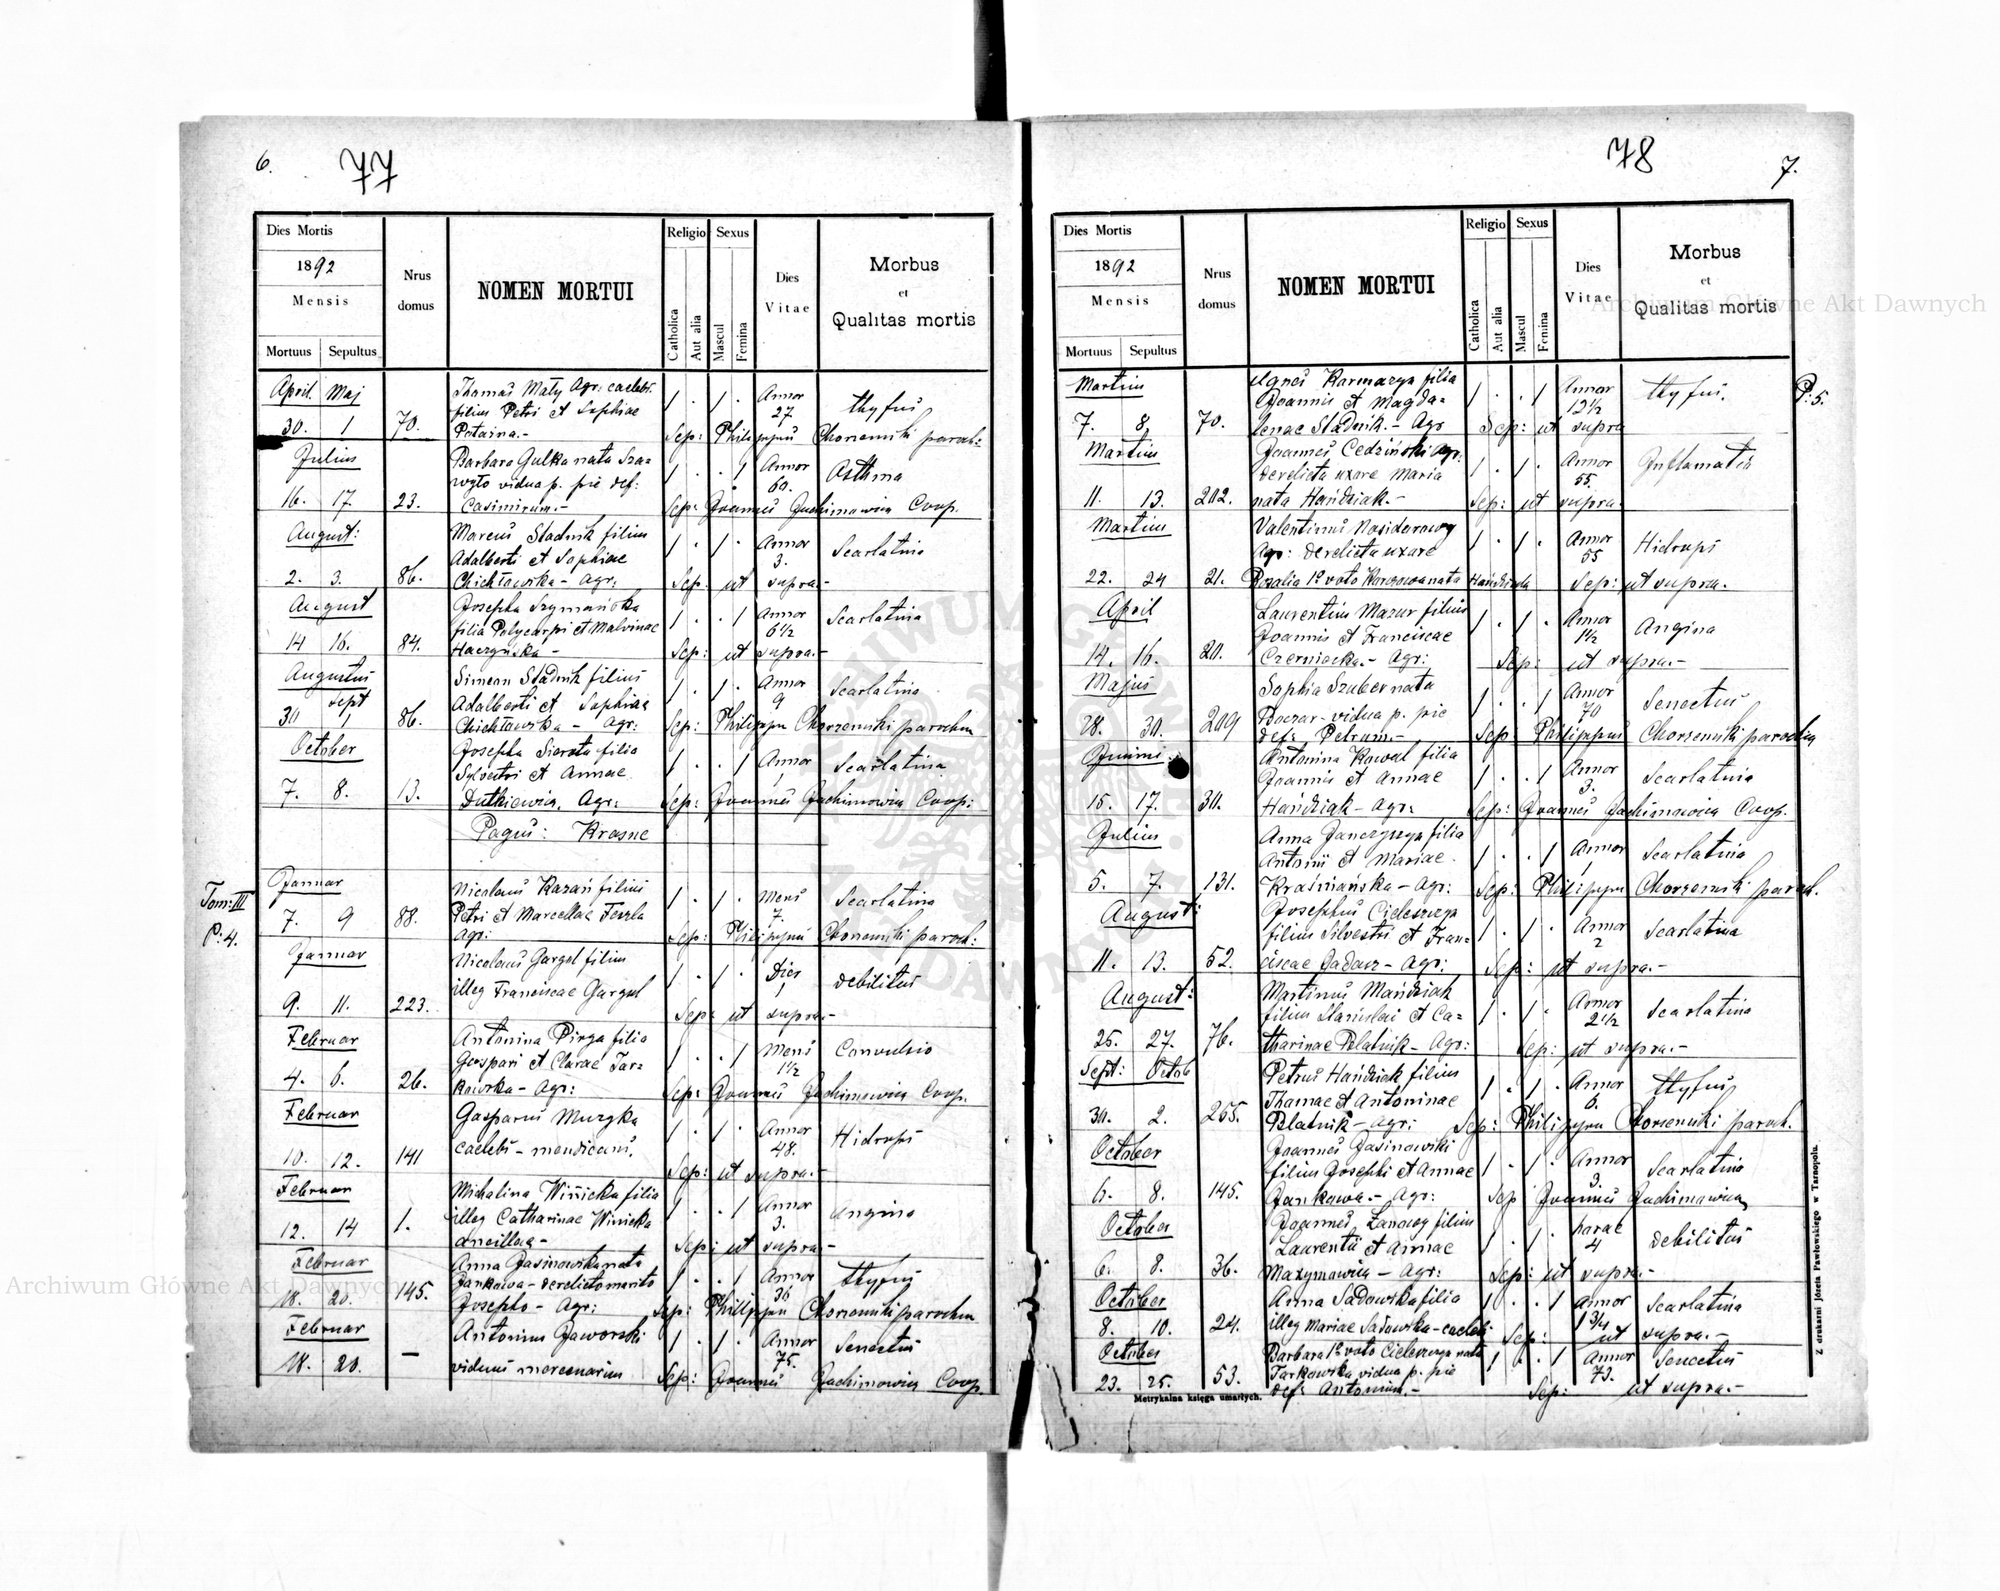 6.
77
Dies Mortis
1892
Mensis
Mortuus Sepultus
Nrus domus
NOMEN MORTUI
Religio
Catholica
Aut alia
Sexus
Mascul
Femina
Dies Vitae
Morbus
et
Qualitas mortis
April. Maj
Thomas Mały Agr: caelebs.
filius Petri et Sophiae
30. 1 70. 27 thyfus
Sep: Philippus Chorzemski paroch:
Julius
Barbara Gulka nata Sza=
wyło vidua p. pie def:
16. 17. 23. Casimirum.- Annor 60. Asthma
Sep: Joannes Jachimowicz Coop.
August:
Marcus Stadnik filius
Adalberti et Sophiae
2. 3. 86. Chichłowska - Agr: Annor 3. Scarlatina
Sep: ut supra.-
August
Josepha Szymańska
filia Polycarpi et Malvinae
14 16. 84. Annor 6½ Scarlatina
Sep: ut supra.-
Augustus
Sept
Simeon Stadnik filius
Adalberti et Sophiae
30 1 86. Chichłowska - Agr: Annor 9 Scarlatina
Sep: Philippus Chorzemski parochus
October
Josepha Sierota filia
Sylvestri et Annae
7. 8. 13. Dutkiewicz. Agr: Annor 1 Scarlatina
Sep: Joannes Jachimowicz Coop:
Pagus: Krasne
Tom: III
P: 4.
Januar
Nicolaus Kazań filius
Petri et Marcellae
7. 9 88. Agr: Mens 7. Scarlatina
Sep: Philippus Chorzemski paroch:
Januar
Nicolaus Gargol filius
illeg Franciscae Gargul
9. 11. 223. Dies 1 debilitas
Sep: ut supra.-
Februar
Antonina Pirga filia
Gaspari et Clarae Tar=
4. 6. 26. kowska - Agr: Mens 1½ Convulsio
Sep: Joannes Jachimowicz Coop.
Februar
Gasparus Muzyka
caelebs - mendicans.
10. 12. 141 Annor 48. Hidrops
Sep: ut supra.-
Februar
Michalina Winicka filia
illeg Catharinae Winicka
12. 14 1. ancillae - Annor 3. Angina
Sep: ut supra.-
Februar
Anna Jasinowska nata
Jankowa - derelicto marito
18. 20. 145. Josepho - Agr: Annor 36 thyfus
Sep: Philippus Chorzemski parochus
Februar
Antonius Jaworski
18. 20. - viduus mercenarius Annor 75. Senectus
Sep: Joannes Jachimowicz Coop.
78
7.
Dies Mortis
1892
Mensis
Mortuus Sepultus
Nrus domus
NOMEN MORTUI
Religio
Catholica
Aut alia
Sexus
Mascul
Femina
Dies Vitae
Morbus
et
Qualitas mortis
P: 5.
Martius
Agnes Karmazyn filia
Joannis et Magda=
7. 8. 70. lenae Stadnik. - Agr Annor 12½ thyfus.
Sep: ut supra
Martius
Joannes Cedziński Agr:
derelicta uxore Maria
11. 13. 202. nata Hańdziak.- Annor 55. Inflamatis
Sep: ut supra.
Martius
Valentinus
Agr: derelicta uxore
22. 24 21. Rosalia 1º voto nata Hańdziak Annor 55 Hidrops
Sep: ut supra.-
April
Laurentius Mazur filius
Joannis et Franciscae
14. 16. 20. Czerniacka.- Agr: Annor 1½ Angina
Sep: ut supra.-
Majus
Sophia Szuber nata
vidua p. pie
28. 30. 209 def: Petrum.- Annor 70 Senectus
Sep: Philippus Chorzemski parochus
Junius
Antonina Kowal filia
Joannis et Annae
15. 17. 30. Hańdziak - Agr: Annor 3. Scarlatina
Sep: Joannes Jachimowicz Coop.
Julius
Anna Janczyszyn filia
Antonii et Mariae
5. 7. 131. Kraśniańska - Agr: Annor 1 Scarlatina
Sep: Philippus Chorzemski paroch.
August:
Josephus Cieleszczyn
filius Silvestri et Fran=
11. 13. 52. ciscae - Agr: Annor 2 Scarlatina
Sep: ut supra.-
August:
Martinus Mańdziak
filius Stanislai et Ca=
25. 27. 76. tharinae Płatnik - Agr: Annor 2½ Scarlatina
Sep: ut supra.-
Sept: Octob
Petrus Hańdziak filius
Thomae et Antoninae
30. 2. 255. Płatnik - Agr: Annor 6. thyfus
Sep: Philippus Chorzemski paroch.
October
Joannes Jasinowski
filius Josephi et Annae
6. 8. 145. Jankowa.- Agr: Annor 3. Scarlatina
Sep Joannes Jachimowicz
October
Joannes Łanowy filius
Laurentii et Annae
6. 8. 36. Maxymowicz - Agr: horae 4 debilitas
Sep: ut supra.-
October
Anna Sadowska filia
illeg Mariae Sadowska - caeleb:
8. 10. 24. Annor 1¾ Scarlatina
Sep: ut supra.-
October
Barbara 1º voto Cieleszczyn nata
Tarkowska vidua p. pie
23. 25. 53. def: Antonium.- Annor 73. Senectus
Sep: ut supra.-
Metrykalna księga umarłych.
Z drukarni Józefa Pawłowskiego w Tarnopolu.
Archiwum Główne Akt Dawnych
Archiwum Główne Akt Dawnych